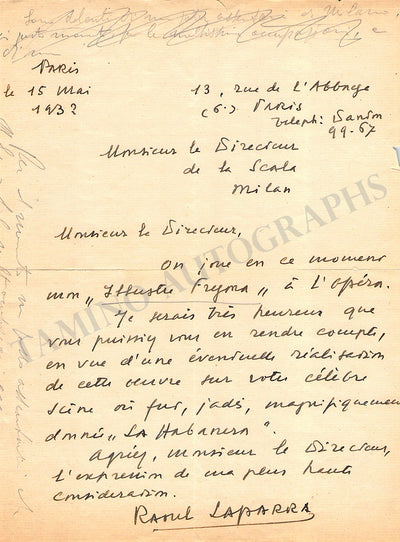 Paris
le 15 Mai
1932
13, rue de l'Abbaye
(6e) Paris
Teleph: Danton
99-67
Monsieur le Directeur
de la Scala
Milan
Monsieur le Directeur,
On joue en ce moment
mon "Illustre Fregona" à l'Opéra.
Je serais très heureux que
vous puissiez vous en rendre compte,
en vue d'une éventuelle réalisation
de cette oeuvre sur votre célèbre
scène où fut, jadis, magnifiquement
donné "La Habanera".
Agréez, monsieur le Directeur,
l'expression de ma plus haute
considération.
Raoul Laparra
TAMINO AUTOGRAPHS